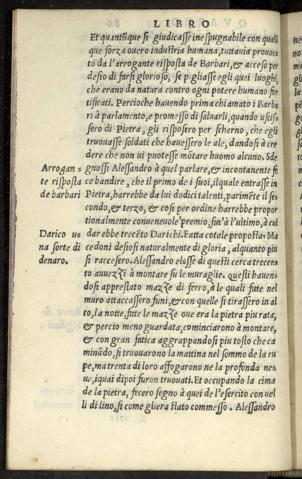 LIBRO
Et quantũque si giudicasse inespugnabile con quali
que forza ouero industria humana, tuttauia prouoca
to da l'arrogante risposta de Barbari, & acceso per
desio di farsi glorioso, se pigliasse egli quei luoghi,
che erano da natura contro ogni potere humano for
tificati. Percioche hauendo prima chiamato i Barba
ri à parlamento, e promesso di saluarli, quando uscis
sero di Pietra, gli risposero per scherno, che egli
trouasse soldati che hauessero le ale, dandosi à cre
dere che non ui puotesse mõtare huomo alcuno. Sde
Arrogan= gnossi Alessandro à quel parlare, & incontanente fe
te risposta ce bandire, che il primo de i suoi, ilquale entrasse in
de barbari Pietra, harrebbe da lui dodici talenti, parimẽte il se
condo, & terzo, & cosi per ordine harrebbe propor
tionalmente conueneuole premio, fin'à l'ultimo, à cui
Darico u= dar ebbe trecẽto Darichi. Fatta cotale proposta i Ma
na sorte di cedoni desiosi naturalmente di gloria, alquanto piu
denaro. si raccesero. Alessandro elesse di questi cerca trecen
to auuezzi à montare su le muraglie. questi hauen
dosi apprestato mazze di ferro, à le quali fitte nel
muro attaccassero funi, & con quelle si tirassero in al
to, la notte, fitte le mazze oue era la pietra piu rata,
& percio meno guardata, cominciarono à montare,
& con gran fatica aggrappandosi à piu tosto che ca
minãdo, si trouarono la mattina nel sommo de la ru
pe, ma trenta di loro affogarono ne la profonda ne=
ue, iquai dipoi furon trouati. Et occupando la cima
de la pietra, fecero segno à quei de l'esercito con uel
li di lino, si come gli era stato commesso. Alessandro